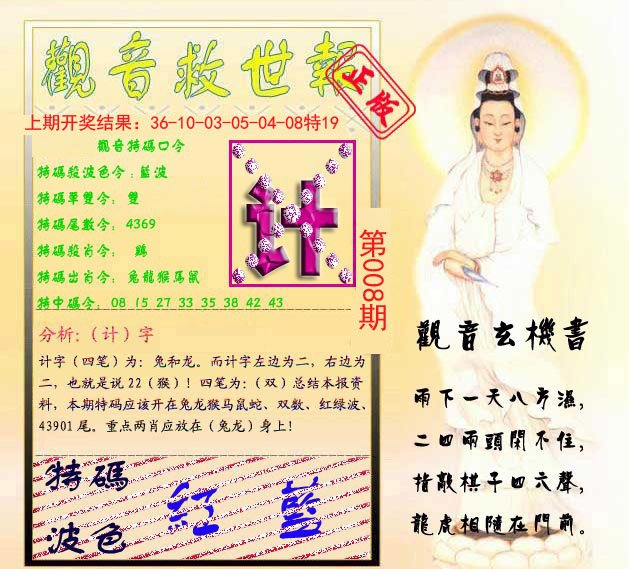 觀音救世報
正版
上期开奖结果：36-10-03-05-04-08特19
觀音特碼口令
特碼殺波色令：藍波
特碼單雙令： 雙
特碼尾數令： 4369
特碼殺肖令： 鷄
特碼出肖令： 兔龍猴馬鼠
特中碼令： 08 15 27 33 35 38 42 43
计
第008期
分析：（计）字
计字（四笔）为：兔和龙。而计字左边为二，右边为
二，也就是说22（猴）！四笔为：（双）总结本报资
料，本期特码应该开在兔龙猴马鼠蛇、双数、红绿波、
43901尾。重点两肖应放在（兔龙）身上！
特碼
波色
紅 藍
觀音玄機書
雨下一天八方濕，
二四兩頭閑不住，
指敲棋子四六聲，
龍虎相隨在門前。